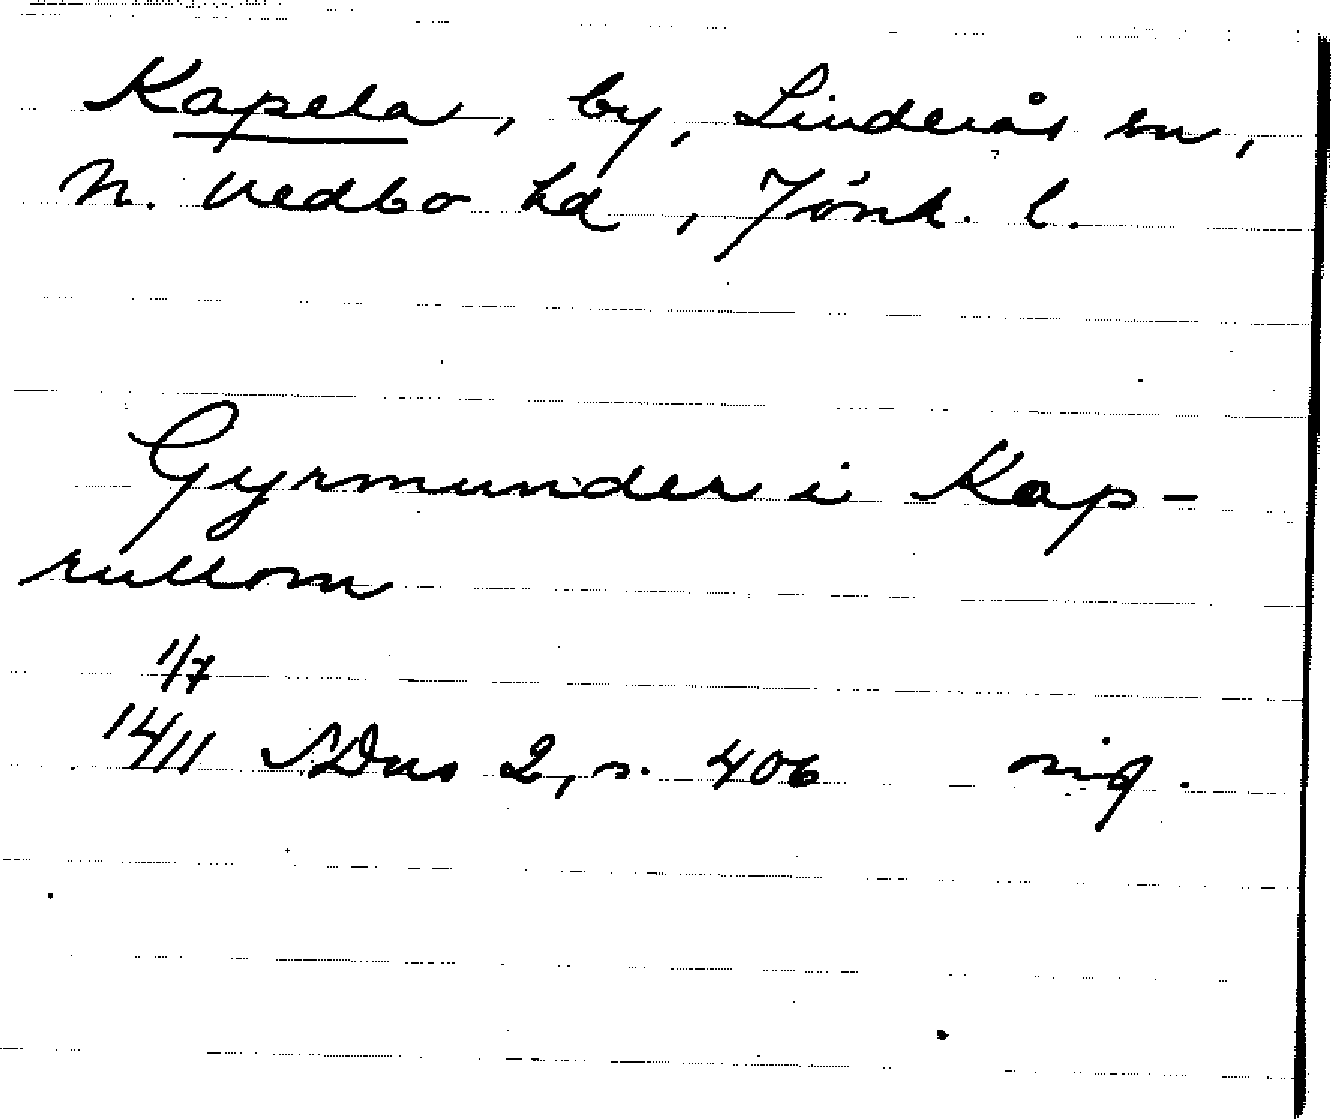 Kapela, by, Linderås sn,
N. Vedbo hd, Jönk. l.
Gyrmunder i Kap-
rullom
1/7
14/11 SDns 2, s. 406 orig.